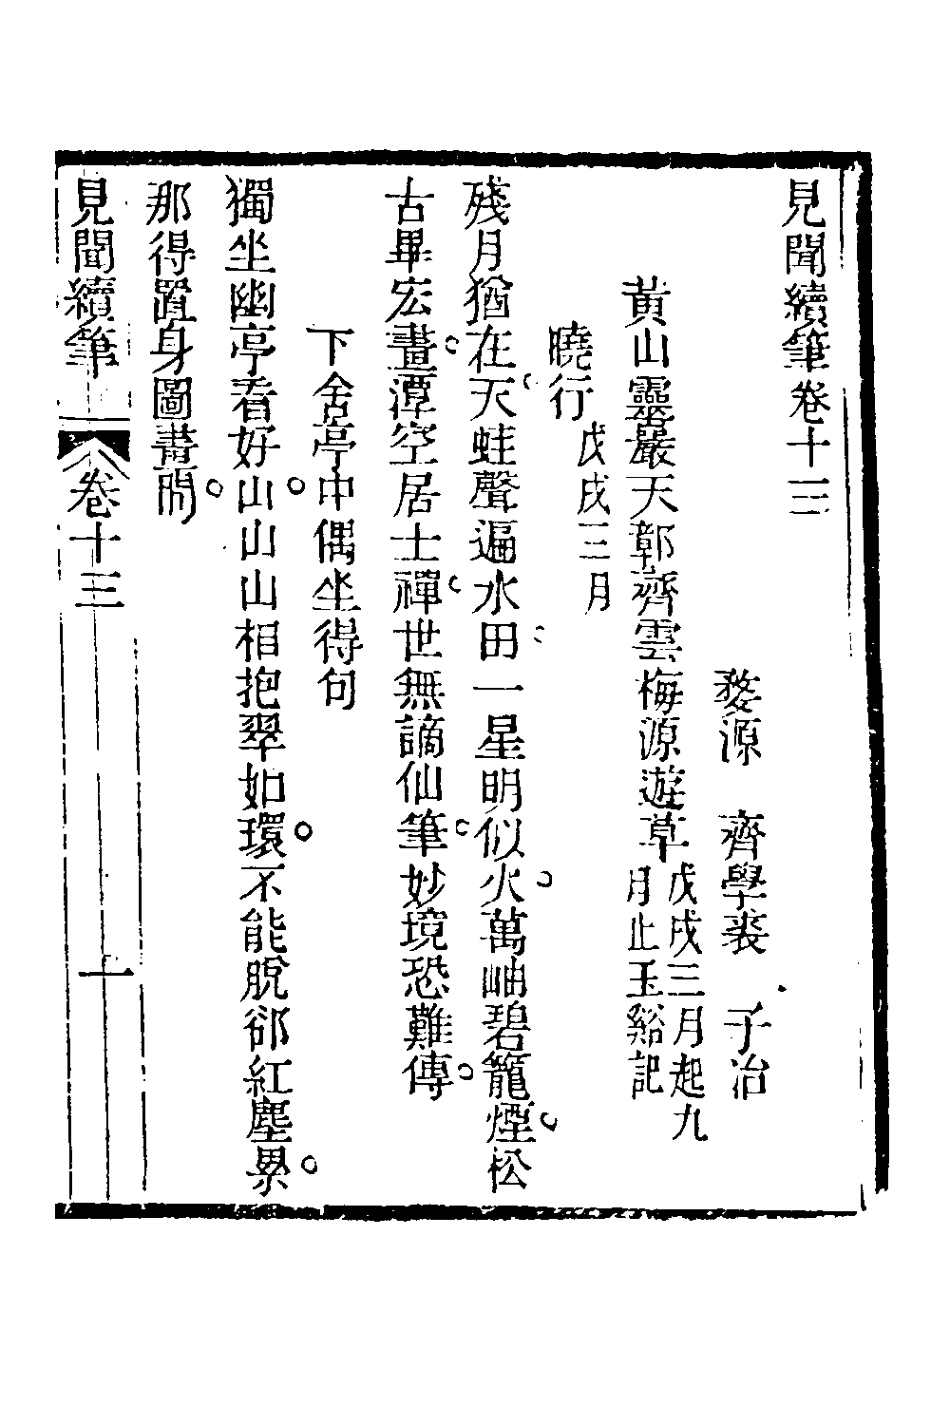 見聞續筆卷十三
婺源　齊學裘　子治
黃山靈巖天鄣齊雲梅源遊草戊戌三月起九月止玉谿記
曉行戊戌三月
殘月猶在天蛙聲遍水田一星明似火萬岫碧籠煙松
古畢宏畫潭空居士禪世無謫仙筆妙境恐難傳
下舍亭中偶坐得句
獨坐幽亭看好山山山相抱翠如環不能脫郤紅塵累
那得置身圖畫間
見聞續筆　卷十三　一